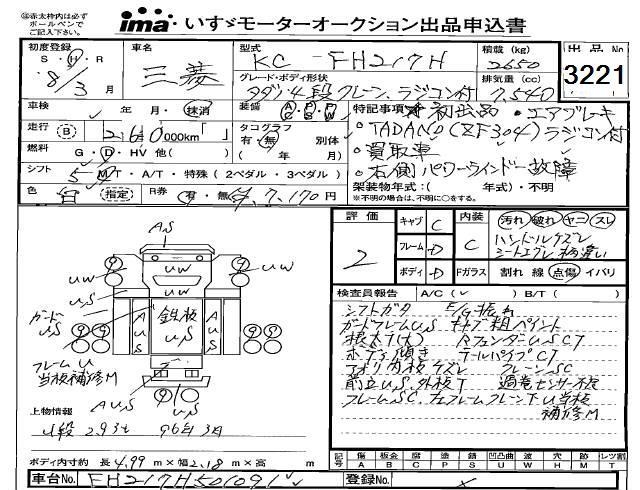 ※赤太枠内は必ず
ボールペンで
ご記入下さい。
ima いすゞモーターオークション出品申込書
初度登録
S・H・R
'8/3月
車名
三菱
型式
KC-FH217H
積載 (kg)
2650
出品No
3221
グレード・ボディ形状
タダノ4段クレーン、ラジコン付
排気量 (cc)
7,540
車検
年 月・抹消
装備
A/C P/S P/W
特記事項
初出品 ・エアブレーキ
・TADANO(ZF304)ラジコン付
・買取車
・右側パワーウインドー故障
走行
B
000km「 」
タコグラフ
有・無
別体
( 年 月)
燃料
G・D・HV 他( )
シフト
5 MT・A/T・特殊 (2ペダル・3ペダル)
架装物年式:( 年式)・不明
※不明の場合は、不明に○をする。
色
白
指定
R券
有・無
7,170円
評価
2
キャブ C
フレーム D
ボディ D
内装
C
Fガラス
汚れ 破れ ヤニ スレ
ハンドルケズレ
シートエプレ柄違い
割れ 線 点傷 イバリ
検査員報告
A/C( ✓ ) B/T( )
シフトガタ
ガードフレームU,S キャブ粗ペイント
根太T(大) RフェンダーU,SCT
ボディ傾き テールパイプCT
アオリ内板ケズレ クレーンSC
前立U,S,外板T 過巻センサー不検
フレームSC,
補修M
AS
UW
UW
UW
UW
U,S
ガード
U,S
AUS
鉄板
U,S
AUS
フレームU
当板補修M
AU,S
U,S
上物情報
4段 2.93t 96年3月
ボディ内寸約 長4.99m×幅2.18m×高 m
記号
A 傷
B 板金
C 腐
P 塗
S 錆
U 凹凸曲
W 波
H 穴
M 跡
T レツ割
車台No.
FH217H501091
登録No.
×